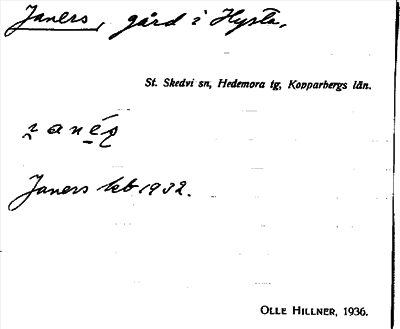 Janers, gård i Hysta,
St. Skedvi sn, Hedemora tg, Kopparbergs län.
Janers kb 1932.
OLLE HILLNER, 1936.